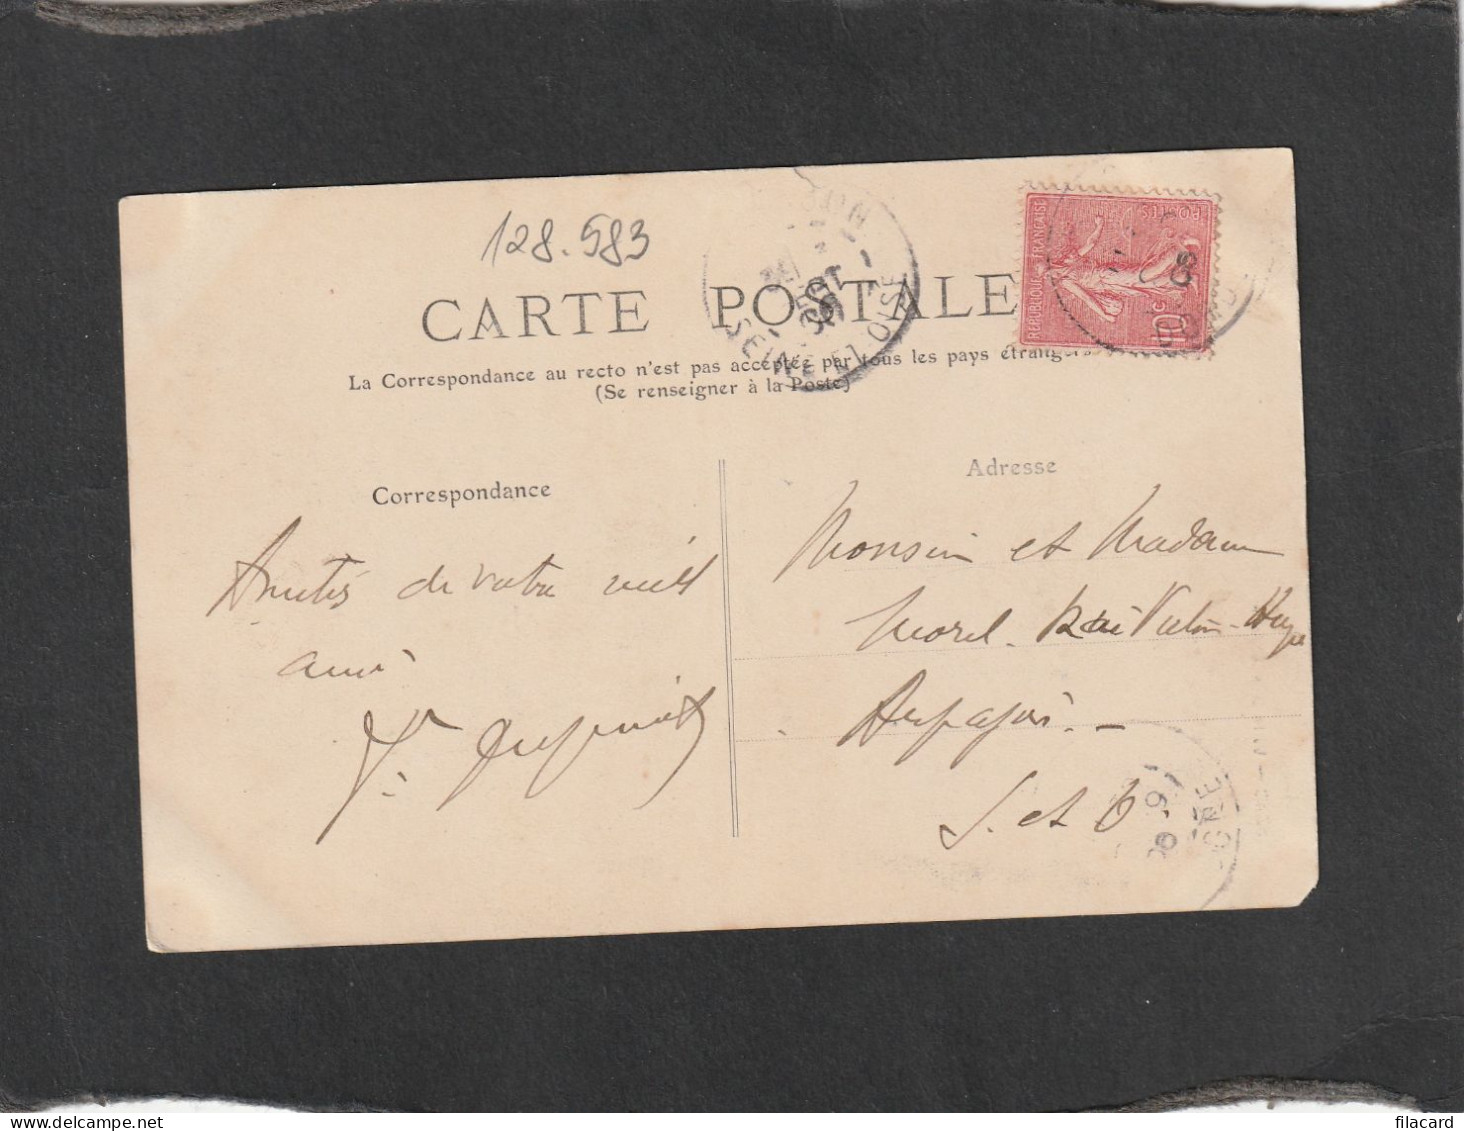 128.983
CARTE POSTALE
La Correspondance au recto n'est pas acceptée par tous les pays étrangers
(Se renseigner à la Poste)
SEINE ET OISE
REPUBLIQUE FRANÇAISE
POSTES
10c
Correspondance
Adresse
Amitiés de votre vieil
ami
Monsieur et Madame
Morel Rue Victor-Hugo
Arpajon. -
S. et O.
filacard.com